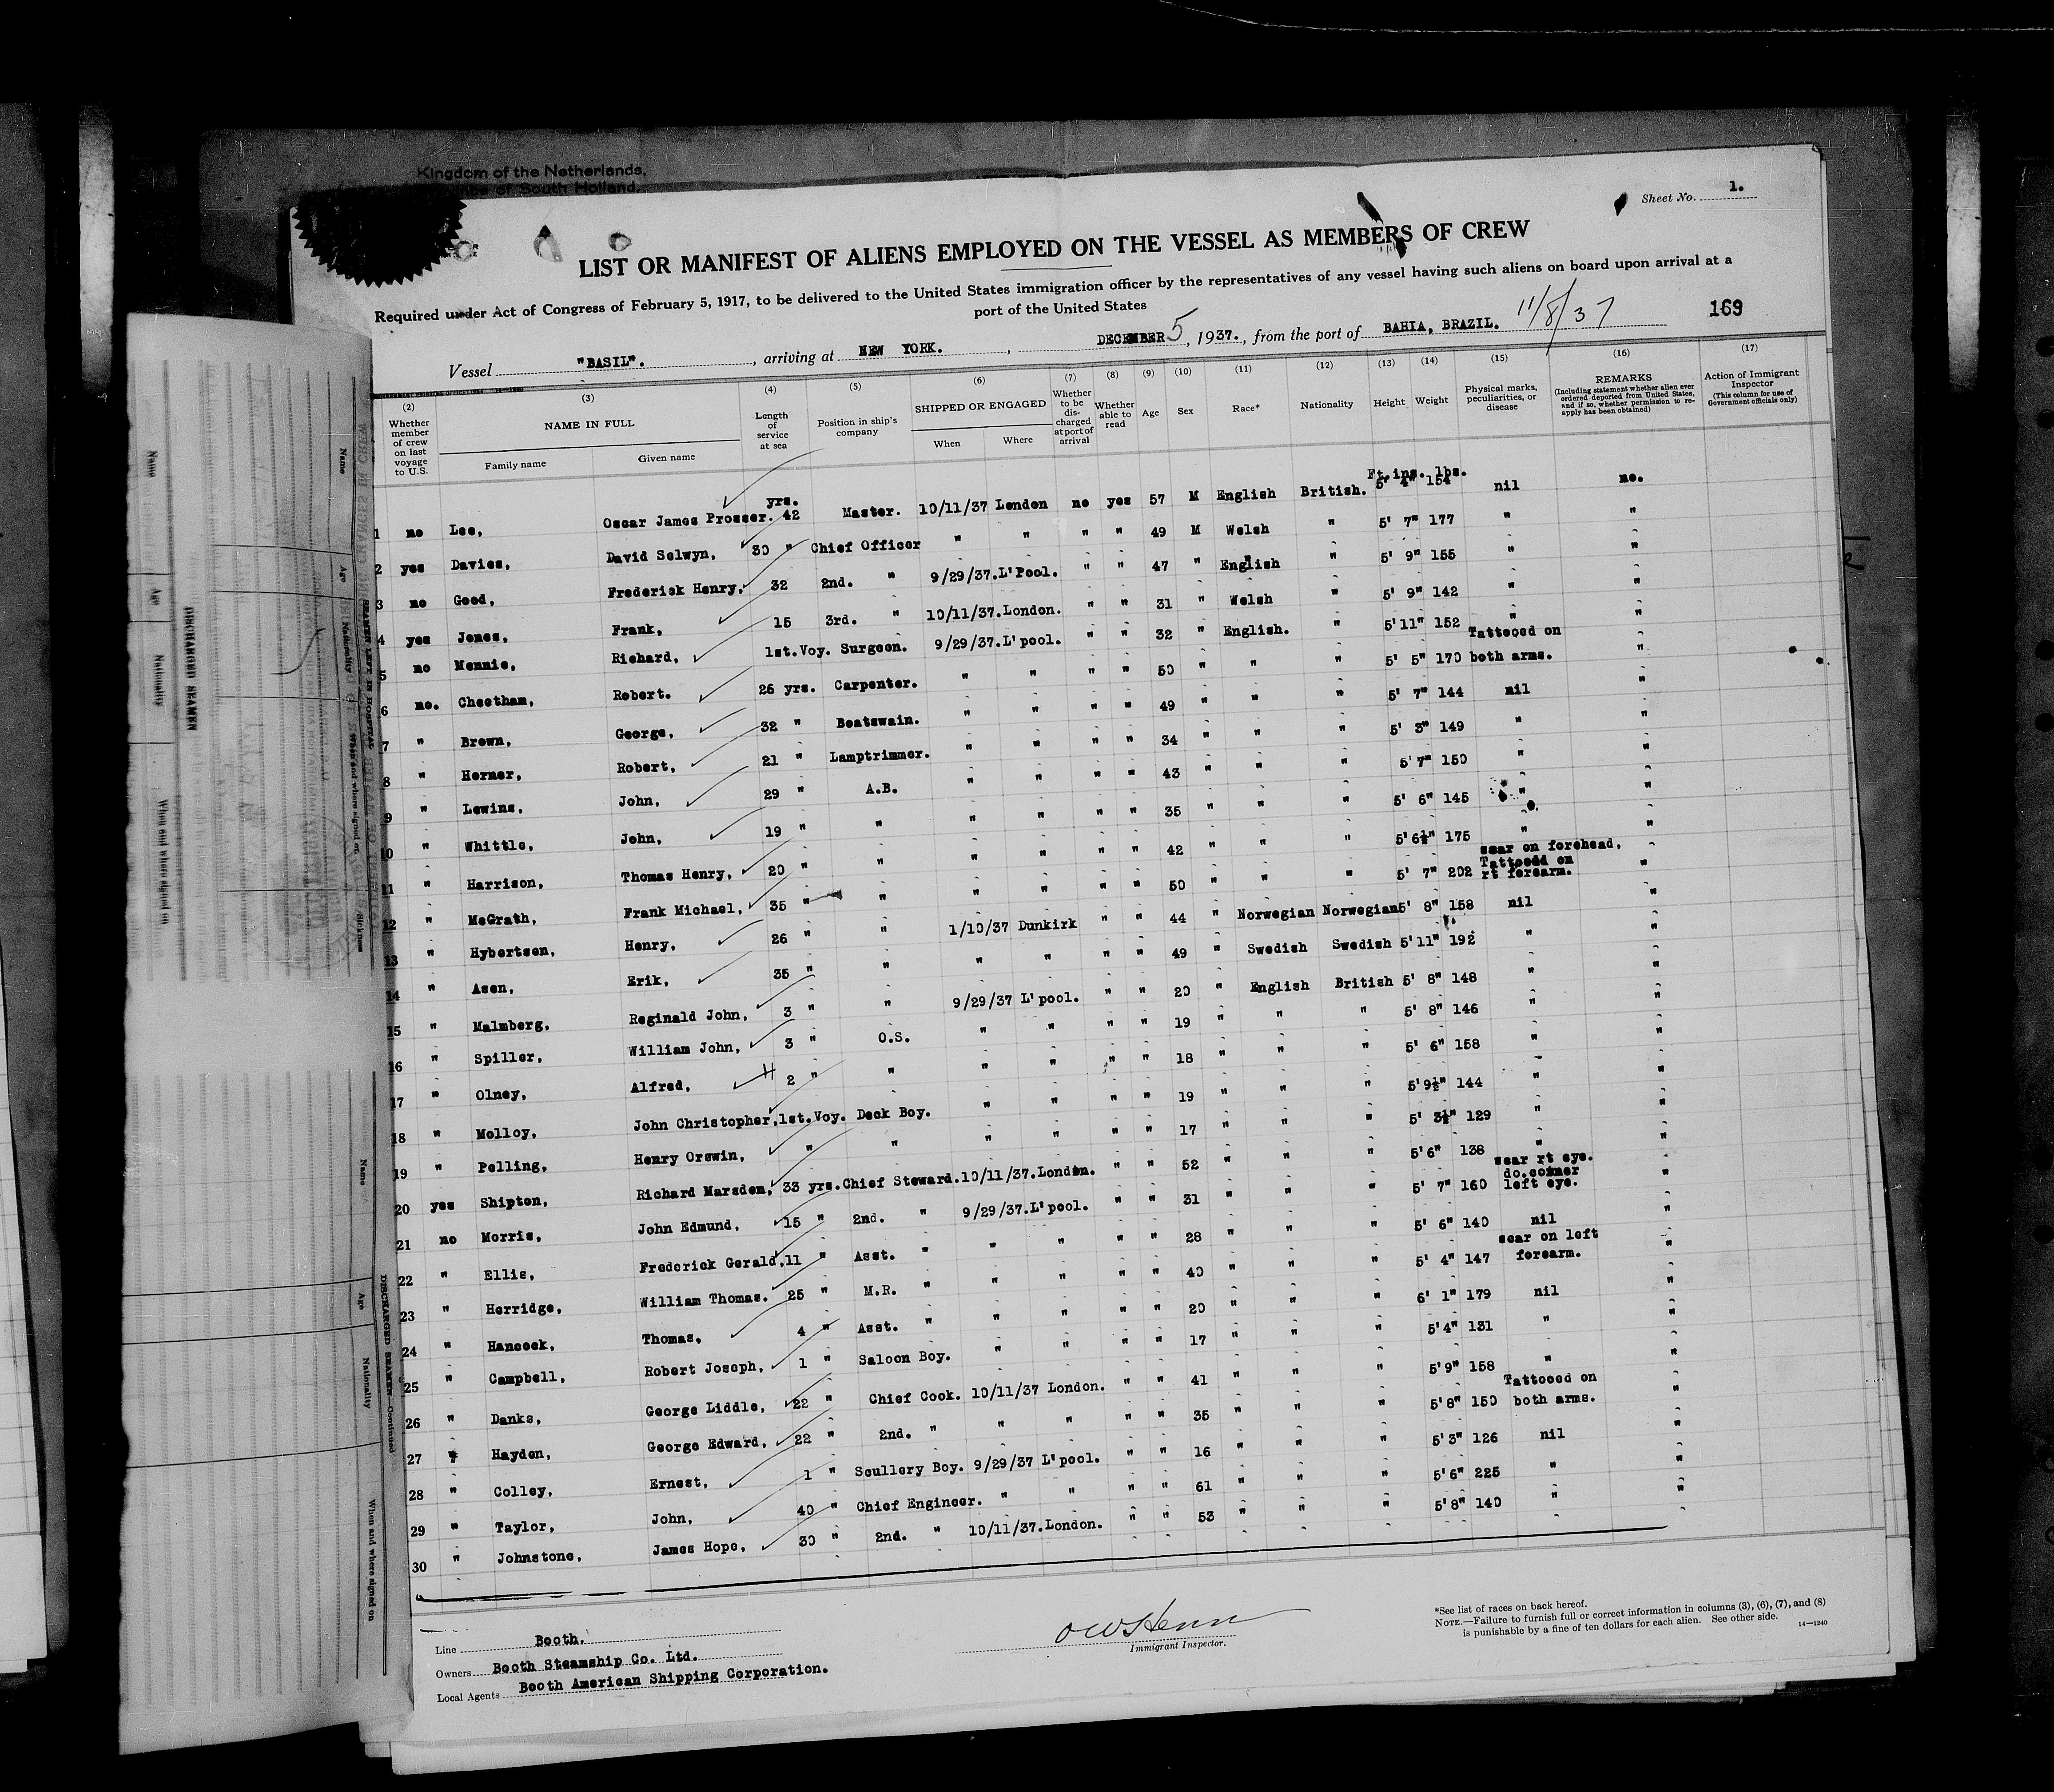 Kingdom of the Netherlands,
of South Holland.
Sheet No. 1.
LIST OR MANIFEST OF ALIENS EMPLOYED ON THE VESSEL AS MEMBERS OF CREW
Required under Act of Congress of February 5, 1917, to be delivered to the United States immigration officer by the representatives of any vessel having such aliens on board upon arrival at a
port of the United States
169
Vessel "BASIL". , arriving at NEW YORK. , DECEMBER 5, 1937., from the port of BAHIA, BRAZIL. 11/8/37
(2) Whether member of crew on last voyage to U.S.
(3) NAME IN FULL
Family name Given name
(4) Length of service at sea
(5) Position in ship's company
(6) SHIPPED OR ENGAGED
When Where
(7) Whether to be discharged at port of arrival
(8) Whether able to read
(9) Age
(10) Sex
(11) Race*
(12) Nationality
(13) Height
(14) Weight
(15) Physical marks, peculiarities, or disease
(16) REMARKS
(Including statement whether alien ever ordered deported from United States, and if so, whether permission to reapply has been obtained)
(17) Action of Immigrant Inspector
(This column for use of Government officials only)
yrs. Ft.ins. lbs.
1 no Lee, Oscar James Prosser. 42 Master. 10/11/37 London no yes 57 M English British. 5' 4" 154 nil no.
2 yes Davies, David Selwyn, 30 " Chief Officer " " " " 49 M Welsh " 5' 7" 177 " "
3 no Good, Frederick Henry, 32 2nd. " 9/29/37.L'Pool. " " 47 " English " 5' 9" 155 " "
4 yes Jones, Frank, 15 3rd. " 10/11/37.London. " " 31 " Welsh " 5' 9" 142 " "
5 no Mennie, Richard, 1st.Voy. Surgeon. 9/29/37.L'pool. " " 32 " English. " 5'11" 152 " "
6 no. Cheetham, Robert. 26 yrs. Carpenter. " " " " 50 " " " 5' 5" 170 Tattooed on both arms. "
7 " Brown, George, 32 " Boatswain. " " " " 49 " " " 5' 7" 144 nil "
8 " Horner, Robert, 21 " Lamptrimmer. " " " " 34 " " " 5' 3" 149 " "
9 " Lewins, John, 29 " A.B. " " " " 43 " " " 5' 7" 150 " "
10 " Whittle, John, 19 " " " " " " 35 " " " 5' 6" 145 " "
11 " Harrison, Thomas Henry, 20 " " " " " " 42 " " " 5' 6½" 175 " "
12 " McGrath, Frank Michael, 35 " " " " " " 50 " " " 5' 7" 202 scar on forehead, Tattooed on rt forearm. "
13 " Hybertsen, Henry, 26 " " 1/10/37 Dunkirk " " 44 " Norwegian Norwegian 5' 8" 158 nil "
14 " Asen, Erik, 35 " " " " " " 49 " Swedish Swedish 5'11" 192 " "
15 " Malmberg, Reginald John, 3 " " 9/29/37 L'pool. " " 20 " English British 5' 8" 148 " "
16 " Spiller, William John, 3 " O.S. " " " " 19 " " " 5' 8" 146 " "
17 " Olney, Alfred, 2 " " " " " " 18 " " " 5' 6" 158 " "
18 " Molloy, John Christopher, 1st.Voy. Deck Boy. " " " " 19 " " " 5'9½" 144 " "
19 " Pelling, Henry Orswin, " " " " " " 17 " " " 5' 3½" 129 " "
20 yes Shipton, Richard Marsden, 33 yrs. Chief Steward. 10/11/37.London. " " 52 " " " 5'6" 138 " "
21 no Morris, John Edmund, 15 " 2nd. " 9/29/37.L'pool. " " 31 " " " 5' 7" 160 scar rt eye. do.corner left eye. "
22 " Ellis, Frederick Gerald, 11 " Asst. " " " " " 28 " " " 5' 6" 140 nil "
23 " Herridge, William Thomas. 25 " M.R. " " " " " 40 " " " 5' 4" 147 scar on left forearm. "
24 " Hancock, Thomas, 4 " Asst. " " " " " 20 " " " 6' 1" 179 nil "
25 " Campbell, Robert Joseph, 1 " Saloon Boy. " " " " 17 " " " 5'4" 131 " "
26 " Danks, George Liddle, 22 " Chief Cook. 10/11/37 London. " " 41 " " " 5'9" 158 " "
27 " Hayden, George Edward, 22 " 2nd. " " " " " 35 " " " 5'8" 150 Tattooed on both arms. "
28 " Colley, Ernest, 1 " Scullery Boy. 9/29/37 L'pool. " " 16 " " " 5'3" 126 nil "
29 " Taylor, John, 40 " Chief Engineer. " " " " 61 " " " 5'6" 225 " "
30 " Johnstone, James Hope, 30 " 2nd. " 10/11/37.London. " " 53 " " " 5'8" 140 " "
Line Booth.
Owners Booth Steamship Co. Ltd.
Local Agents Booth American Shipping Corporation.
Immigrant Inspector.
*See list of races on back hereof.
NOTE.—Failure to furnish full or correct information in columns (3), (6), (7), and (8)
is punishable by a fine of ten dollars for each alien. See other side. 14—1240
DISCHARGED SEAMEN
Name Age Nationality When and where signed on
SEAMEN LEFT IN HOSPITAL
Name Age Nationality When and where signed on Sickness
DISCHARGED SEAMEN—Continued
Name Age Nationality When and where signed on